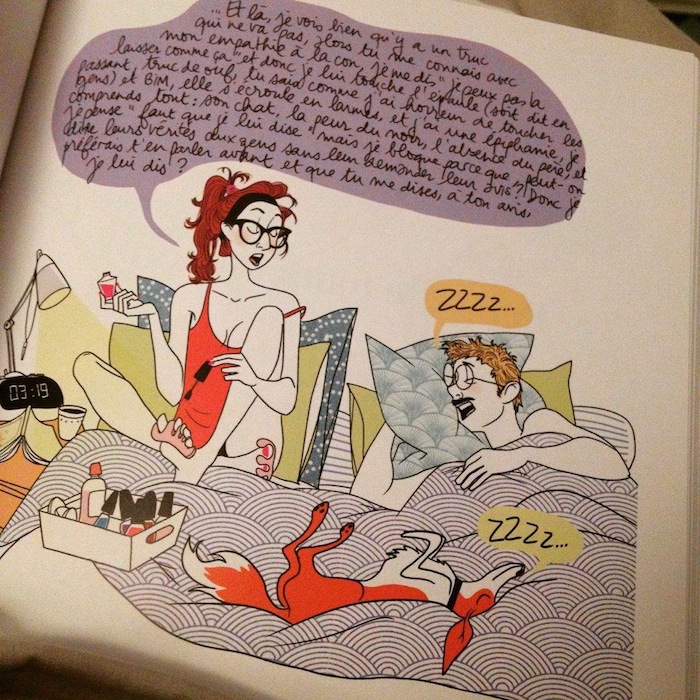 ... Et là, je vois bien qu'y a un truc
qui ne va pas, alors tu me connais avec
mon empathie à la con, je me dis, "je peux pas la
laisser comme ça" et donc je lui touche l'épaule (soit dit en
passant, truc de ouf, tu sais comme j'ai horreur de toucher les
gens) et BIM, elle s'écroule en larmes, et j'ai une épiphanie, je
comprends tout : son chat, la peur du noir, l'absence du père, et
je pense "faut que je lui dise" mais je bloque parce que, peut-on
dire leurs vérités aux gens sans leur demander leur avis ? Donc je
préférais t'en parler avant et que tu me dises, à ton avis,
je lui dis ?
ZZZZ...
03:19
ZZZZ...